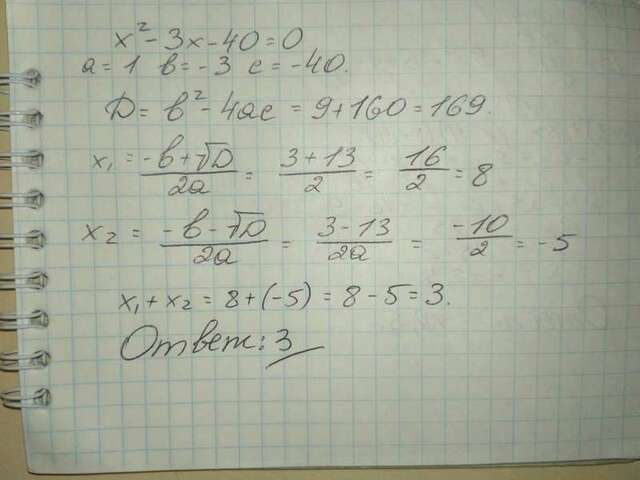 x² - 3x - 40 = 0
a = 1 в = -3 c = -40.
D = в² - 4ac = 9 + 160 = 169.
x₁ = (-в + √D)/(2a) = (3 + 13)/2 = 16/2 = 8
x₂ = (-в - √D)/(2a) = (3 - 13)/(2a) = (-10)/2 = -5
x₁ + x₂ = 8 + (-5) = 8 - 5 = 3.
Ответ: 3